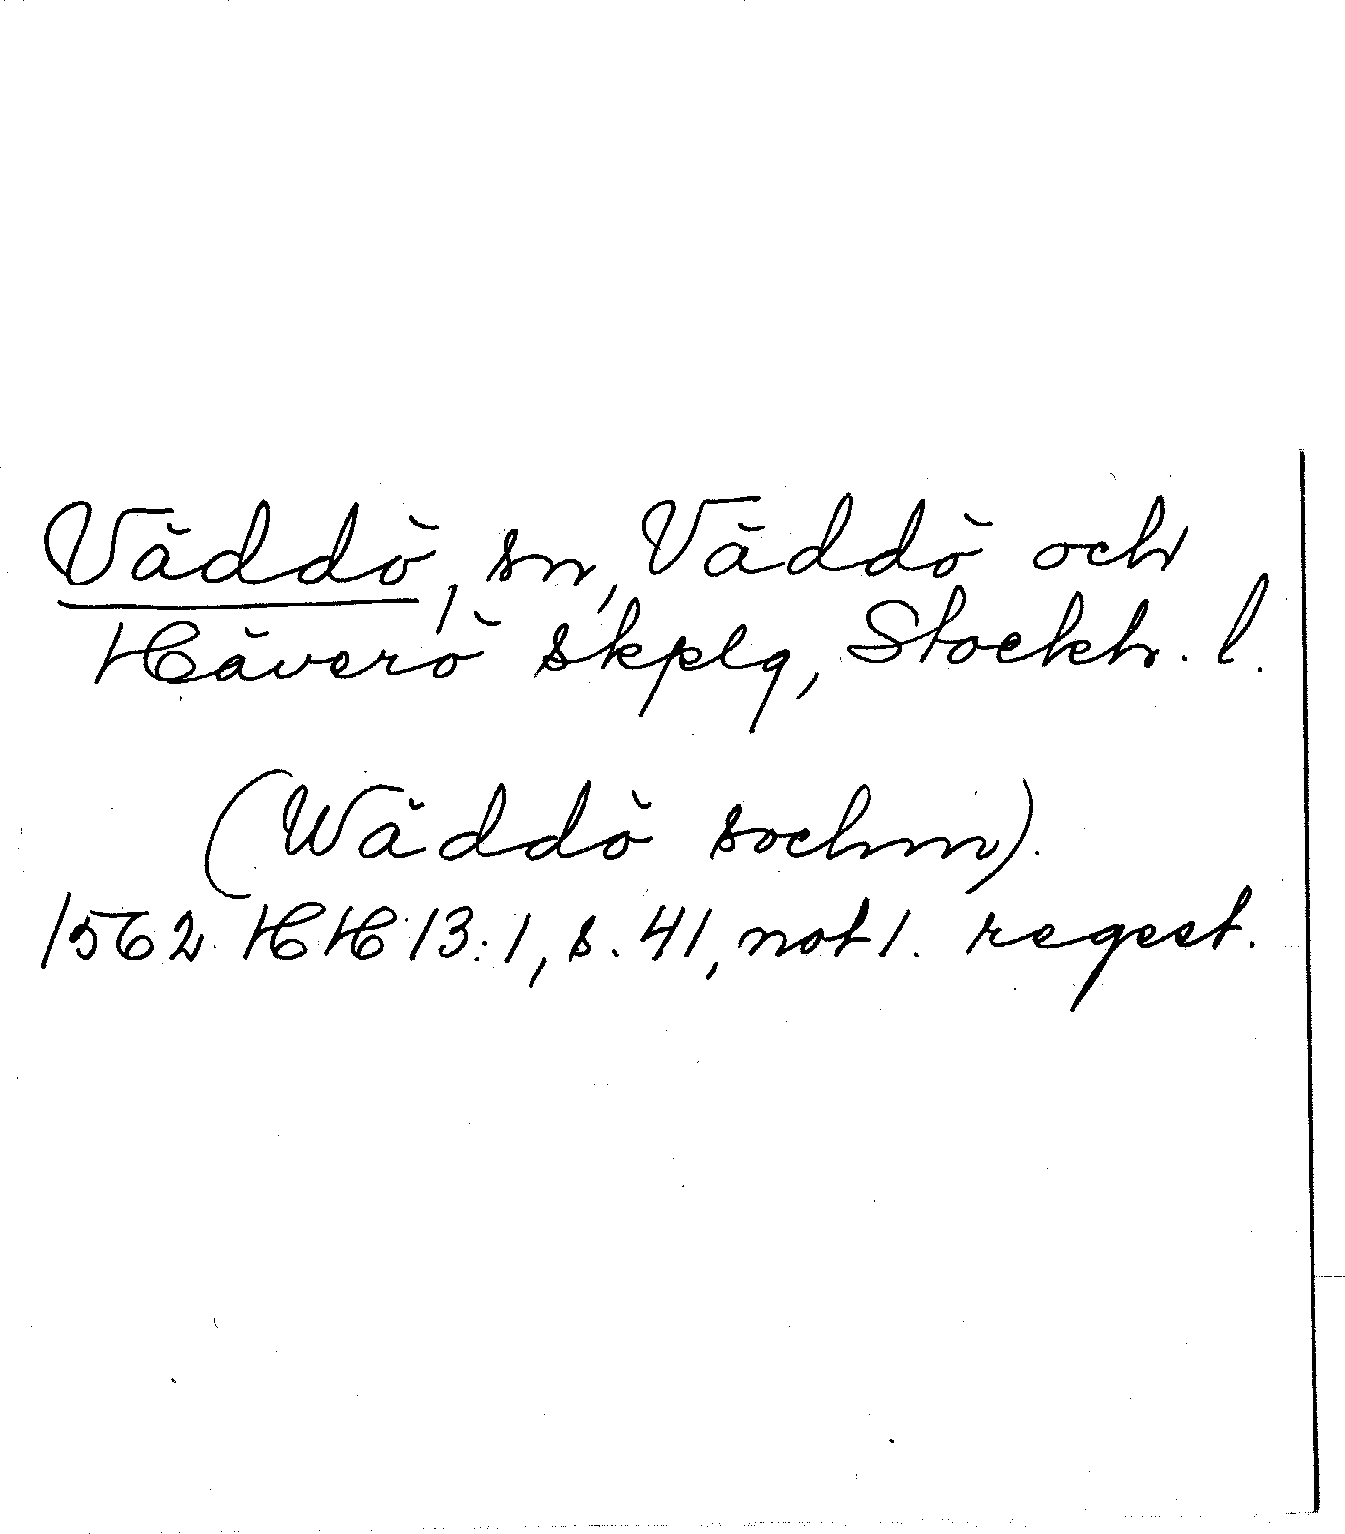 Väddö, sn, Väddö och
Häverö skplg, Stockh. l.
(Wäddö sochnn).
1562 HH 13:1, s. 41, not 1. regest.